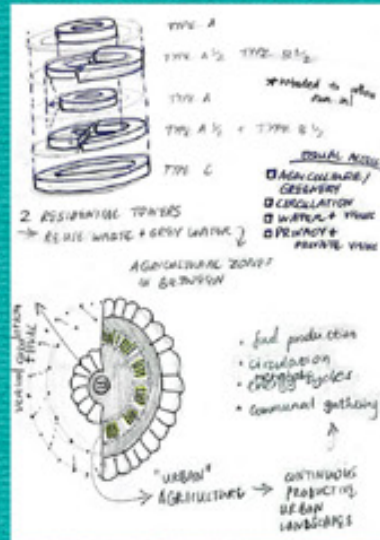 TYPE A
TYPE A ½ TYPE B ½
TYPE A
TYPE A ½ + TYPE B ½
TYPE C
* rotated to allow sun in!
EQUAL ACCESS
AGRICULTURE/
GREENERY
CIRCULATION
WATER + VIEWS
PRIVACY +
PRIVATE VIEWS
2 RESIDENTIAL TOWERS
→ REUSE WASTE + GREY WATER
AGRICULTURAL ZONES
IN BETWEEN
VERTICAL CIRCULATION
• food production
• circulation
• energy cycles
• communal gathering
"URBAN"
AGRICULTURE → CONTINUOUS
PRODUCTIVE
URBAN
LANDSCAPES